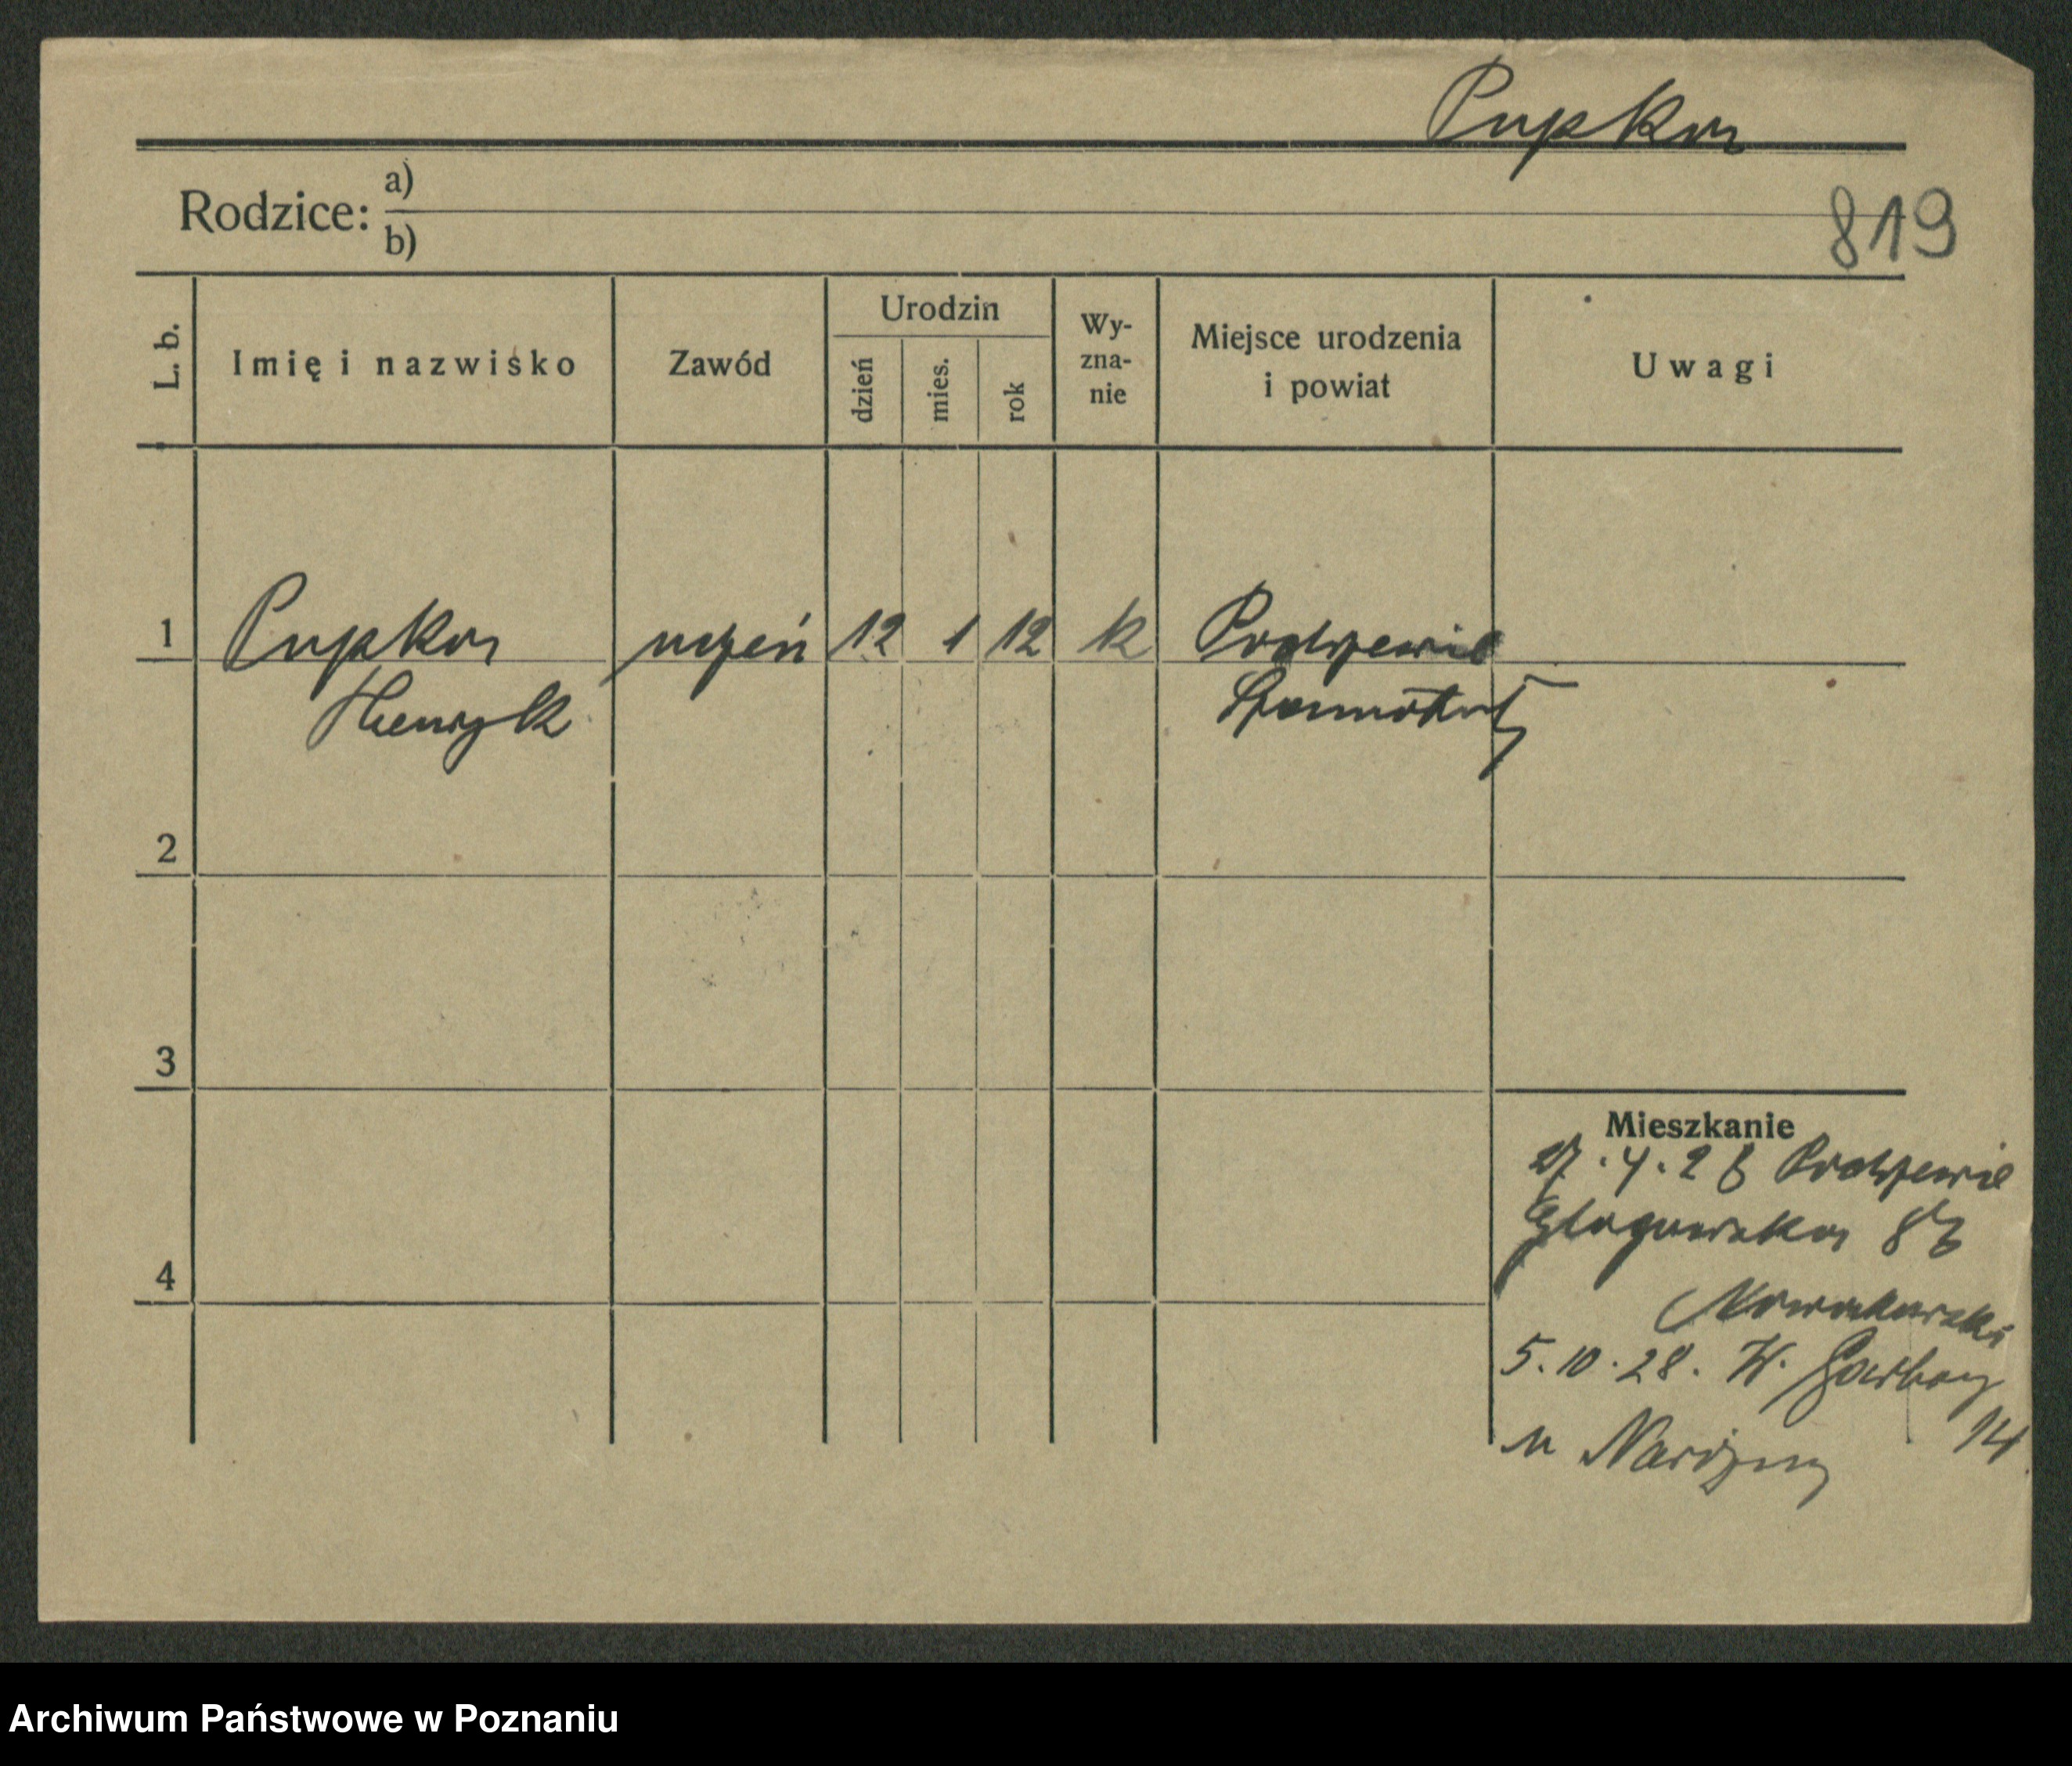 Pupka
819
Rodzice: a)
b)
L. b.
Imię i nazwisko
Zawód
Urodzin
dzień
mies.
rok
Wy-
zna-
nie
Miejsce urodzenia
i powiat
Uwagi
1 Pupka uczeń 12 1 12 k Podrzewie
Henryk Szamotuły
2
3
4
Mieszkanie
27.4.28 Podrzewie
Głogowska 86
Nowakowski
5.10.28. W. Garbary
14
u
Archiwum Państwowe w Poznaniu